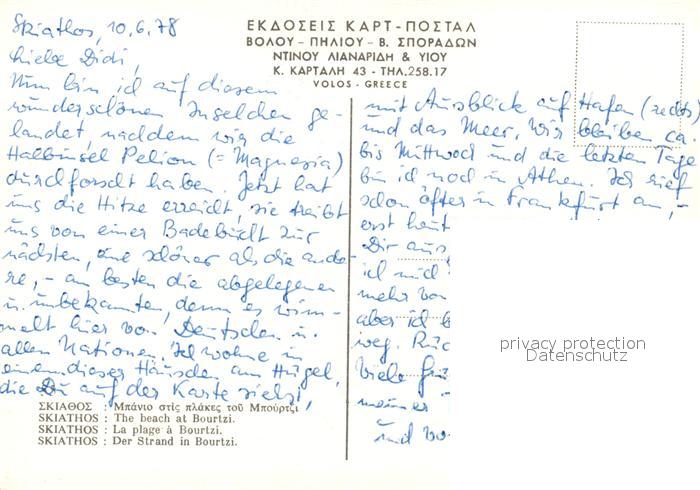 Skiathos, 10.6.78
Liebe Didi,
Nun bin ich auf diesem
wunderschönen Inselchen ge-
landet, nachdem wir die
Halbinsel Pelion (= Magnesia)
durchforscht haben. Jetzt hat
uns die Hitze erreicht, sie treibt
uns von einer Badebucht zur
nächsten, eine schöner als die ande-
re, – am besten die abgelegenen
u. unbekannten, denn es wim-
melt hier von Deutschen u.
allen Nationen. Ich wohne in
einem dieser Häuschen am Hügel,
die Du auf der Karte siehst,
ΕΚΔΟΣΕΙΣ ΚΑΡΤ-ΠΟΣΤΑΛ
ΒΟΛΟΥ - ΠΗΛΙΟΥ - Β. ΣΠΟΡΑΔΩΝ
ΝΤΙΝΟΥ ΛΙΑΝΑΡΙΔΗ & ΥΙΟΥ
Κ. ΚΑΡΤΑΛΗ 43 - ΤΗΛ.258.17
VOLOS - GREECE
mit Ausblick auf Hafen (rechts)
und das Meer. Wir bleiben ca.
bis Mittwoch und die letzten Tage
bin ich noch in Athen. Ich rief
schon öfter in Frankfurt an, –
erst heut
Dir aus
ich mich
mehr von
aber ich b
weg.
viele Grü
meiner
und vo
privacy protection
Datenschutz
ΣΚΙΑΘΟΣ : Μπάνιο στὶς πλάκες τοῦ Μπούρτζι
SKIATHOS : The beach at Bourtzi.
SKIATHOS : La plage à Bourtzi.
SKIATHOS : Der Strand in Bourtzi.